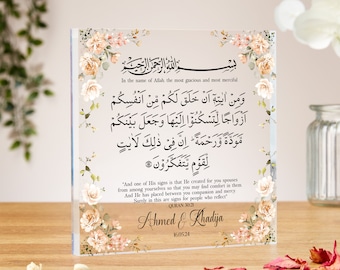 بسم الله الرحمن الرحيم
In the name of Allah, the most gracious and most merciful
وَمِنْ اٰيٰتِهٖٓ اَنْ خَلَقَ لَكُمْ مِّنْ اَنْفُسِكُمْ
اَزْوَاجًا لِّتَسْكُنُوْٓا اِلَيْهَا وَجَعَلَ بَيْنَكُمْ
مَّوَدَّةً وَّرَحْمَةً ۗ اِنَّ فِيْ ذٰلِكَ لَاٰيٰتٍ
لِّقَوْمٍ يَّتَفَكَّرُوْنَ
"And one of His signs is that He created for you spouses
from among yourselves so that you may find comfort in them.
And He has placed between you compassion and mercy.
Surely in this are signs for people who reflect"
QURAN 30:21
Ahmed & Khadija
16.05.24